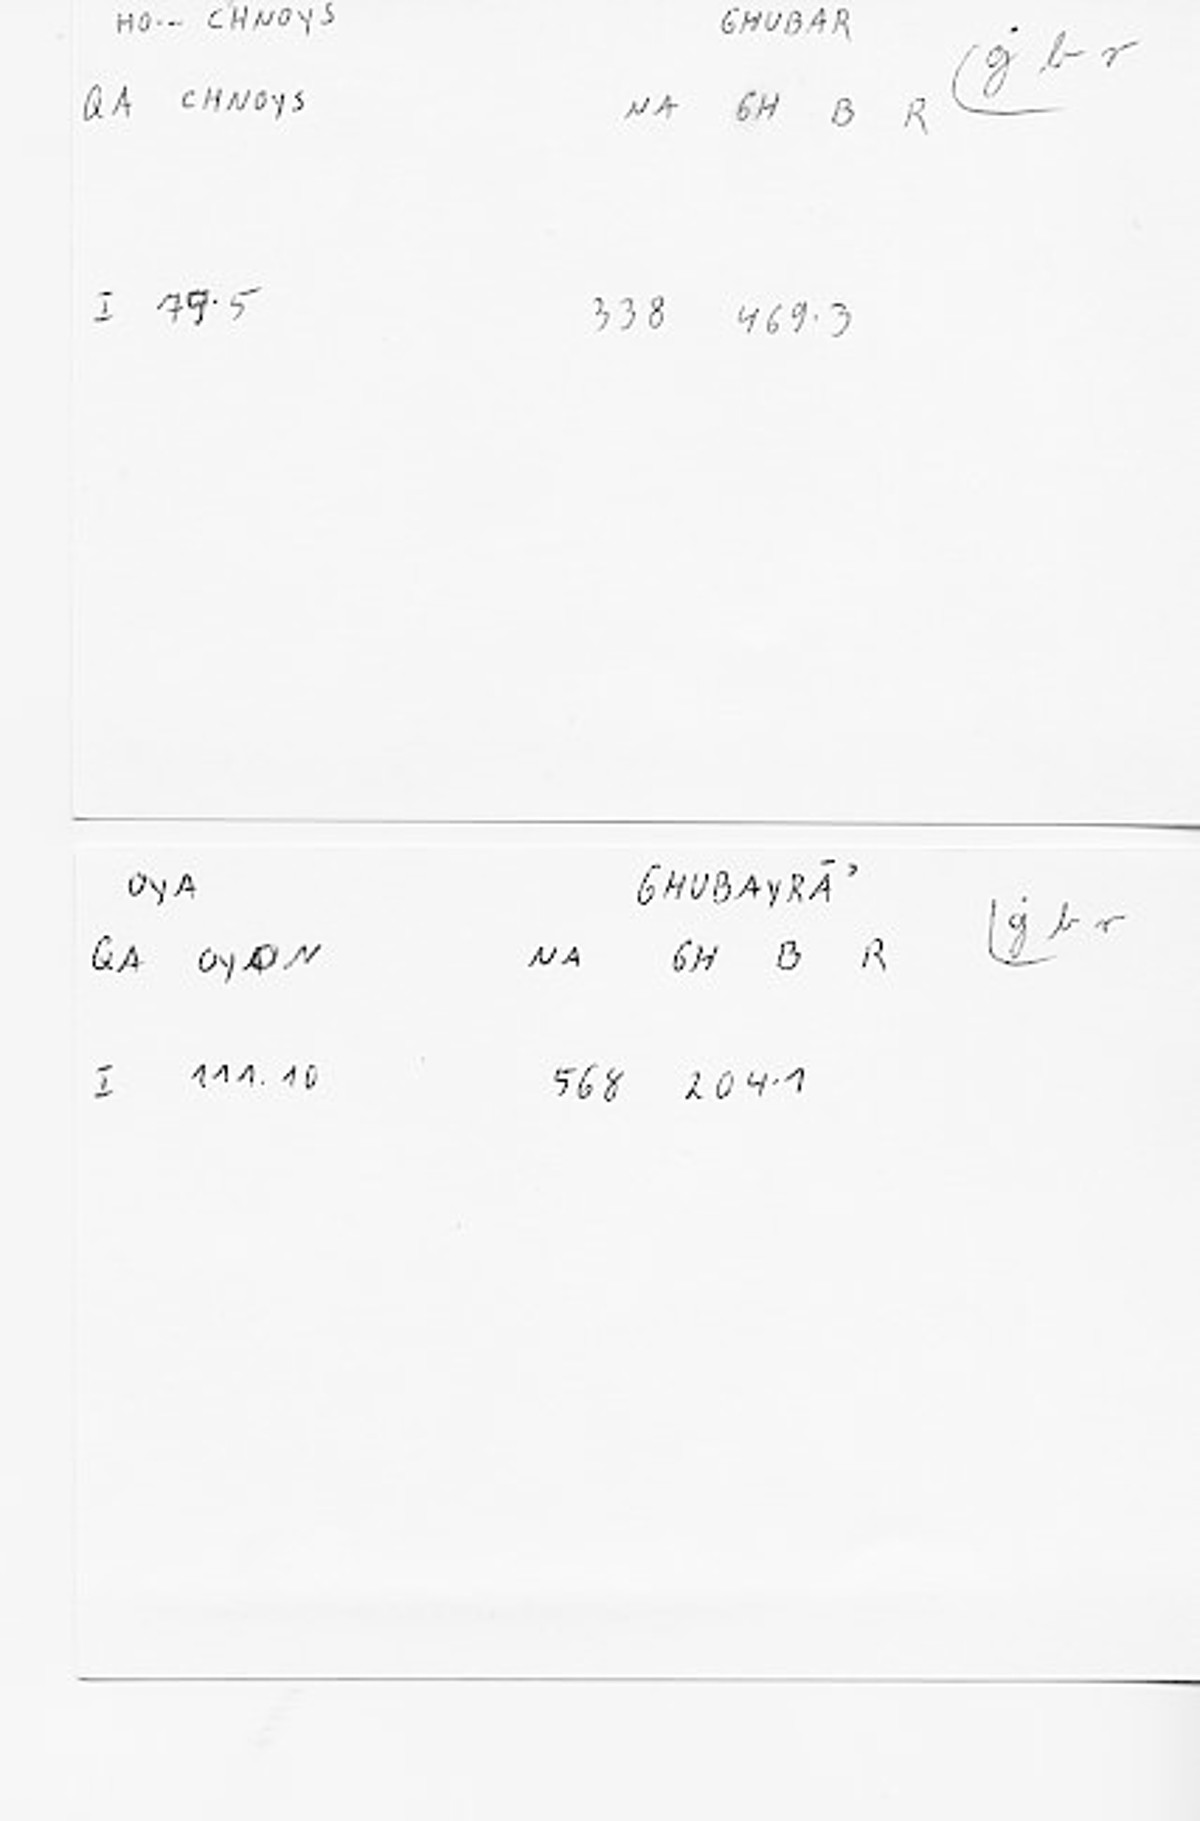 HO-- CHNOYS GHUBAR
QA CHNOYS NA GH B R ġ b r
I 79.5 338 469.3
OYA GHUBAYRĀʾ
QA OYON NA GH B R ġ b r
I 111.10 568 204.1